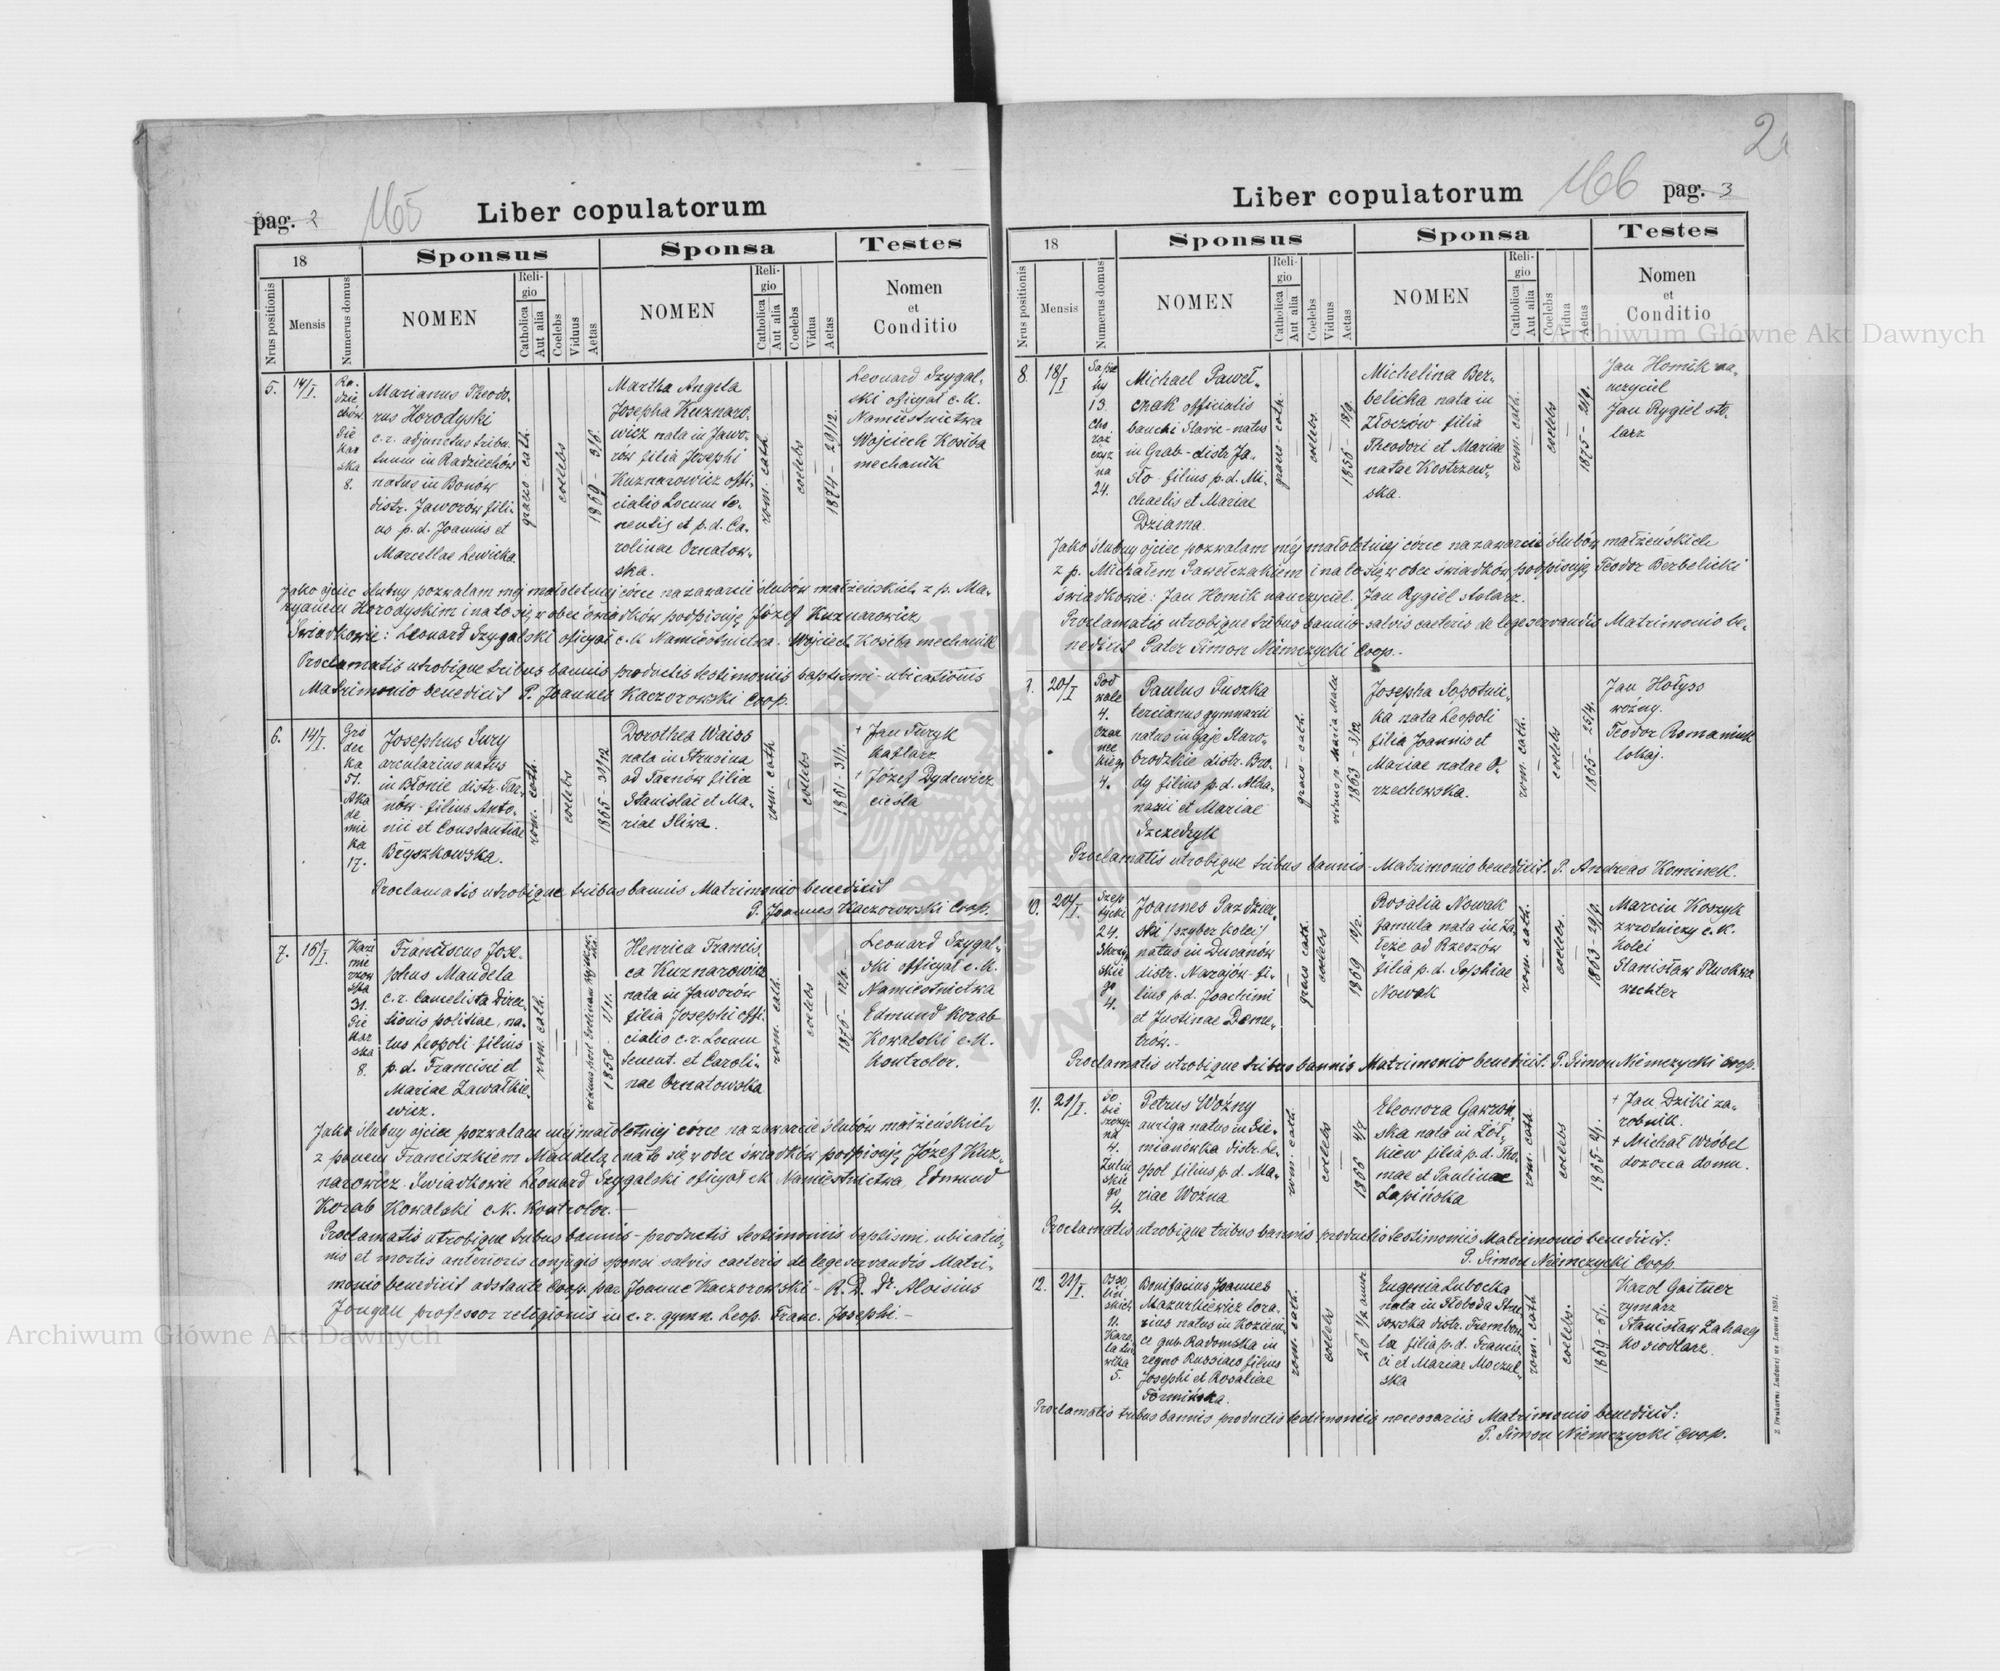 2
pag. 2
165
Liber copulatorum
18
Sponsus
Sponsa
Testes
Nrus positionis
Mensis
Numerus domus
NOMEN
Religio
Catholica
Aut alia
Coelebs
Viduus
Aetas
NOMEN
Religio
Catholica
Aut alia
Coelebs
Vidua
Aetas
Nomen
et
Conditio
5.
14/I.
Ra-
dzie-
chów
Pie
kar
ska
8.
Marianus Theodo-
rus Horodyski
c. r. adjunctus tribu-
tuum in Radziechów
natus in Bonów
distr. Jaworów fili-
us p. d. Joannis et
Marcellae Lewicka.
graeco - cath.
coelebs
1869 - 3/6.
Martha Angela
Josepha Kuznaro-
wicz nata in Jawo-
rów filia Josephi
Kuznarowicz offi-
cialis Locum te-
nentis et p. d. Ca-
rolinae Ornatow-
ska.
rom. cath.
coelebs
1874 - 29/12.
Leonard Szygal-
ski oficyał c. k.
Namiestnictwa
Wojciech Kosiba
mechanik
Jako ojciec ślubny pozwalam mej małoletniej córce na zawarcie ślubów małżeńskich z p. Ma-
ryanem Horodyskim i na to się w obec świadków podpisuję Józef Kuznarowicz
Świadkowie: Leonard Szygalski oficyał c. k. Namiestnictwa. Wojciech Kosiba mechanik
Proclamatis utrobique tribus bannis productis testimoniis baptismi - ubicationis
Matrimonio benedixit P. Joannes Kaczorowski Coop.
6.
14/I.
Gró
dec
ka
51.
Aka
de
mic
ka
17.
Josephus Jury
arcularius natus
in Błonie distr. Tar-
nów - filius Anto-
nii et Constantiae
Bryszkowska.
rom. cath.
coelebs
1865 - 31/12
Dorothea Waiss
nata in Strusina
ad Tarnów filia
Stanislai et Ma-
riae Sliwa.
rom. cath
coelebs
1861 - 31/1.
+ Jan Turyk
kaflarz
+ Józef Dydewicz
cieśla
Proclamatis utrobique tribus bannis Matrimonio benedixit
P. Joannes Kaczorowski Coop.
7.
16/I.
Kazi
mie
rzow
ska
31.
Pie
kar
ska
8.
Franciscus Jose-
phus Mandela
c. r. Cancelista Direc-
tionis politiae, na-
tus Leopoli filius
p. d. Francisci et
Mariae Zawałkie-
wicz.
rom. cath.
1858 - 1/11.
Henrica Francis-
ca Kuznarowicz
nata in Jaworów
filia Josephi offi-
cialis c. r. Locum
tenent. et Caroli-
nae Ornatowska
rom. cath.
coelebs
1876 - 12/6.
Leonard Szygal-
ski officyał c. k.
Namiestnictwa
Edmund Korab
Kowalski c. k.
Kontrolor.
Jako ślubny ojciec pozwalam mej małoletniej córce na zawarcie ślubów małżeńskich
z panem Franciszkiem Mandelą i na to się w obec świadków podpisuję Józef Kuz-
narowicz. Świadkowie Leonard Szygalski oficyał ck Namiestnictwa, Edmund
Korab Kowalski c. k. Kontrolor. —
Proclamatis utrobique tribus bannis - productis testimoniis baptismi, ubicatio-
nis et mortis anterioris conjugis sponsi salvis caeteris de lege servandis Matri-
monio benedixit adstante Coop. par. Joanne Kaczorowski - R. D. Dr. Aloisius
Jougan professor religionis in c. r. gymn. Leop. Franc. Josephi. —
Liber copulatorum
166
pag. 3
18
Sponsus
Sponsa
Testes
Nrus positionis
Mensis
Numerus domus
NOMEN
Religio
Catholica
Aut alia
Coelebs
Viduus
Aetas
NOMEN
Religio
Catholica
Aut alia
Coelebs
Vidua
Aetas
Nomen
et
Conditio
8.
18/I
Sapie
hy
13.
Cho
rąż
czyz
na
24.
Michael Paweł-
czak officialis
banchi Slavic - natus
in Grab - distr. Ja-
sło - filius p. d. Mi-
chaelis et Mariae
Dziama.
graeco - cath.
coelebs.
1856 - 18/9.
Michelina Ber-
belicka nata in
Złoczów filia
Theodori et Mariae
natae Kostrzew-
ska.
rom. cath.
coelebs
1875 - 21/9.
Jan Homik na-
uczyciel
Jan Rygiel sto-
larz
Jako ślubny ojciec pozwalam mej małoletniej córce na zawarcie ślubów małżeńskich
z p. Michałem Pawełczakiem i na to się w obec świadków podpisuję Teodor Berbelicki
świadkowie: Jan Homik nauczyciel. Jan Rygiel stolarz.
Proclamatis utrobique tribus bannis - salvis caeteris de lege servandis Matrimonio be-
nedixit Pater Simon Niemczycki Coop. -
9.
20/I
Pod
wale
4.
Czar
nec
kiego
4.
Paulus Puszka
tercianus gymnazii
natus in Gaje Staro-
brodzkie distr. Bro-
dy filius p. d. Atha-
nazii et Mariae
Szczedryk
graeco - cath.
viduus p. Maria Mala
1863 - 3/12
Josepha Sopotnic-
ka nata Leopoli
filia Joannis et
Mariae natae O-
rzechowska.
rom. cath.
coelebs
1865 - 25/4.
Jan Hołyss
woźny.
Teodor Romaniuk
lokaj.
Proclamatis utrobique tribus bannis - Matrimonio benedixit. P. Andreas Kominek.
10.
20/I.
Szep
tycki
24.
Skarb
kie
go
4.
Joannes Pazdzier-
ski (szyber kolei)
natus in Dusanów
distr. Narajów - fi-
lius p. d. Joachimi
et Justinae Deme-
trów. -
graeco cath.
coelebs
1869 19/2.
Rosalia Nowak
famula nata in Za-
łęże ad Rzeszów
filia p. d. Sophiae
Nowak
rom. cath.
coelebs.
1863 - 29/9.
Marcin Koszyk
zwrotniczy c. k.
kolei
Stanisław Pluskwa
wechter
Proclamatis utrobique tribus bannis Matrimonio benedixit. P. Simon Niemczycki Coop.
11.
21/I.
So
bie
szczyz
na
4.
Zuliń
skie
go
4.
Petrus Woźny
auriga natus in Sie-
mianówka distr. Le-
opol filius p. d. Ma-
riae Woźna
rom. cath.
coelebs
1866 4/7
Eleonora Gawroń-
ska nata in Żół-
kiew filia p. d. Tho-
mae et Paulinae
Lapińska
rom. cath.
coelebs
1865 - 2/1.
+ Jan Dziki za-
robnik.
+ Michał Wróbel
dozorca domu.
Proclamatis utrobique tribus bannis productis testimoniis Matrimonio benedixit:
P. Simon Niemczycki Coop.
12.
21/I.
Osso
liń
skich
11.
Karo
la Lud
wika
5.
Bonifacius Joannes
Mazurkiewicz lora-
rius natus in Kozieni-
ce gub. Radomska in
regno Russiaco filius
Josephi et Rosaliae
Formińska.
rom. cath.
coelebs
26 1/2 annor
Eugenia Lubocka
nata in Słoboda Stru-
sowska distr. Trembow-
la filia p. d. Francis-
ci et Mariae Moczul-
ska
rom. cath
coelebs.
1869 - 5/1.
Karol Gaitner
rymarz
Stanisław Zaharej
ko siodlarz.
Proclamatis tribus bannis productis testimoniis necessariis Matrimonio benedixit:
P. Simon Niemczycki Coop.
Z Drukarni Ludowej we Lwowie 1891.
Archiwum Główne Akt Dawnych
Archiwum Główne Akt Dawnych